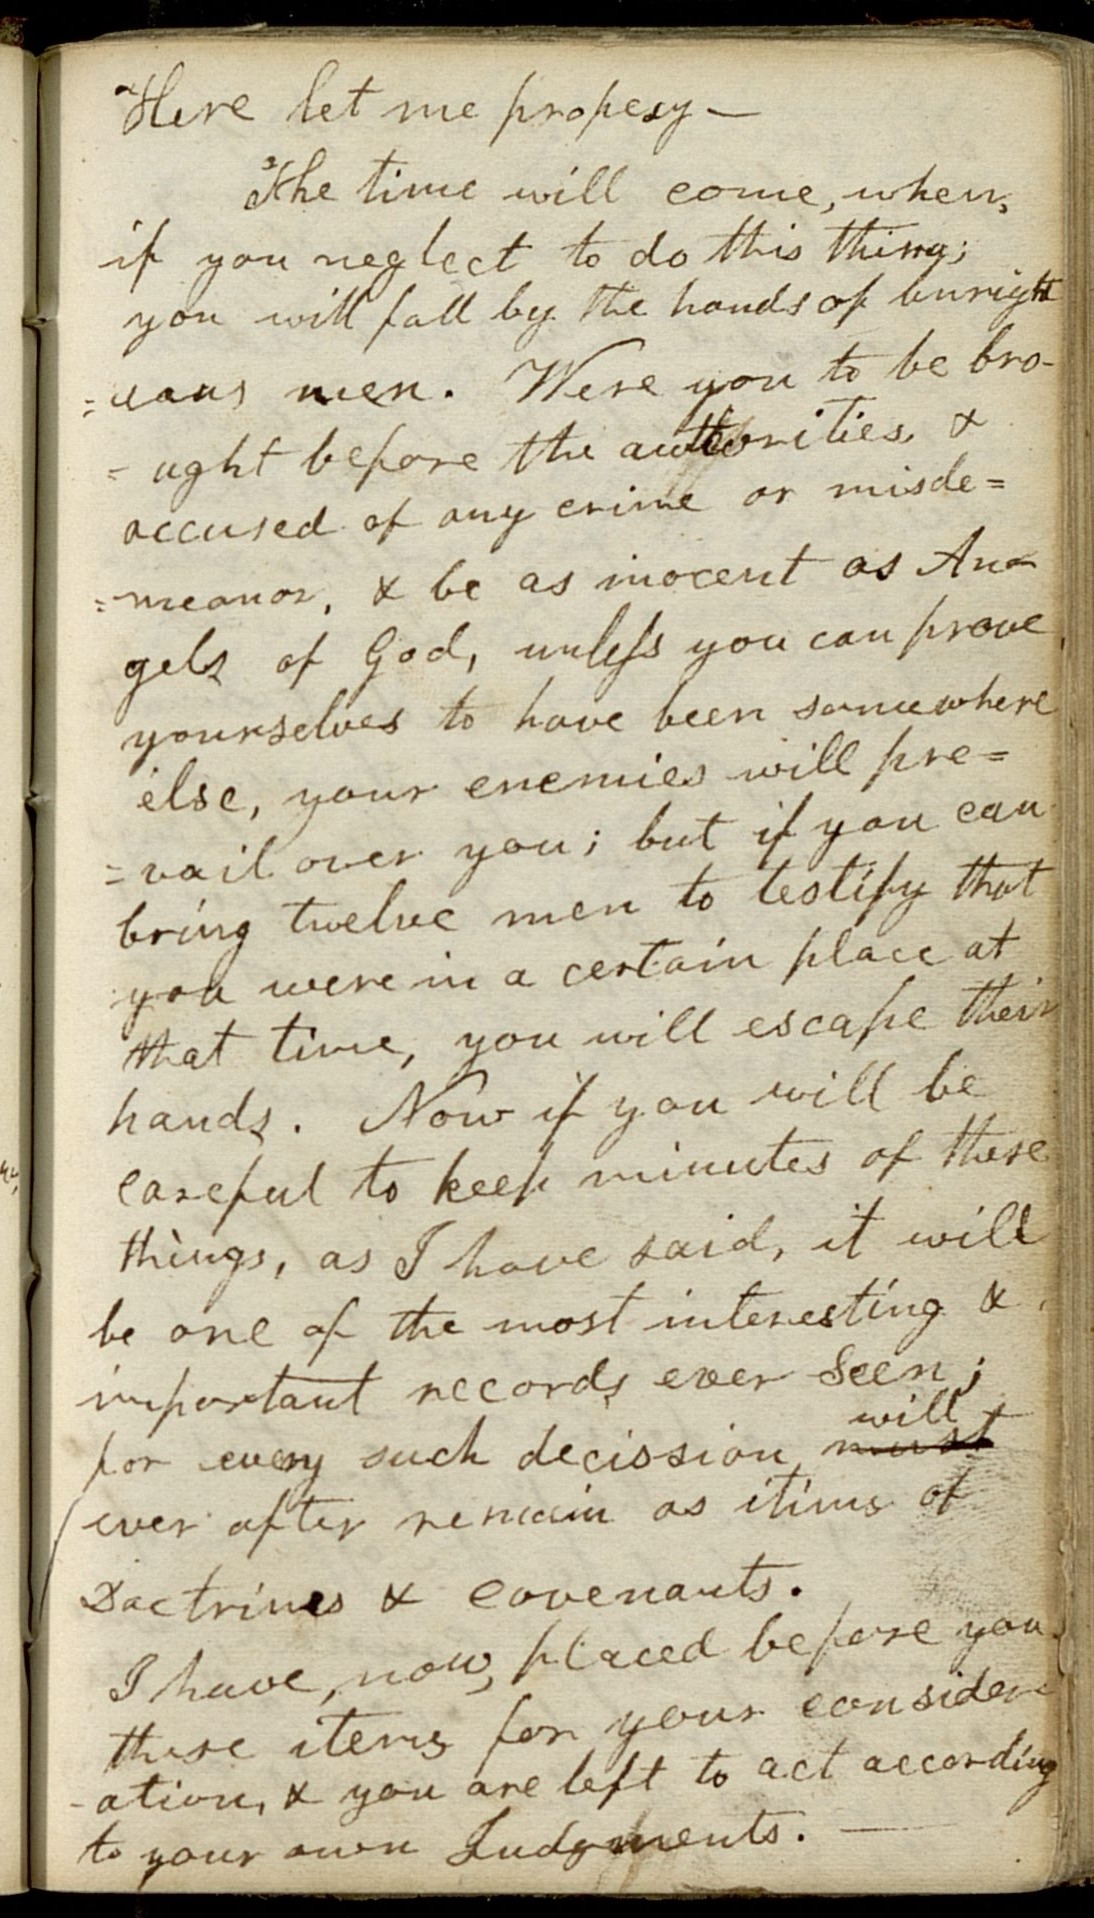 Here let me propesy —
The time will come, when,
if you neglect to do this thing;
you will fall by the hands of unright
=eous men. Were you to be bro-
-ught before the authorities, &
accused of any crime or misde=
=meanor, & be as inocent as An-
gels of God, unless you can prove
yourselves to have been somewhere
else, your enemies will pre=
=vail over you; but if you can
bring twelve men to testify that
you were in a certain place at
that time, you will escape their
hands. Now if you will be
careful to keep minutes of these
things, as I have said, it will
be one of the most interesting &
important records ever seen;
will
for every such decission must
ever after remain as itims of
Doctrines & covenants.
I have, now, placed before you
these items for your consider
-ation, & you are left to act according
to your own Judgments. —